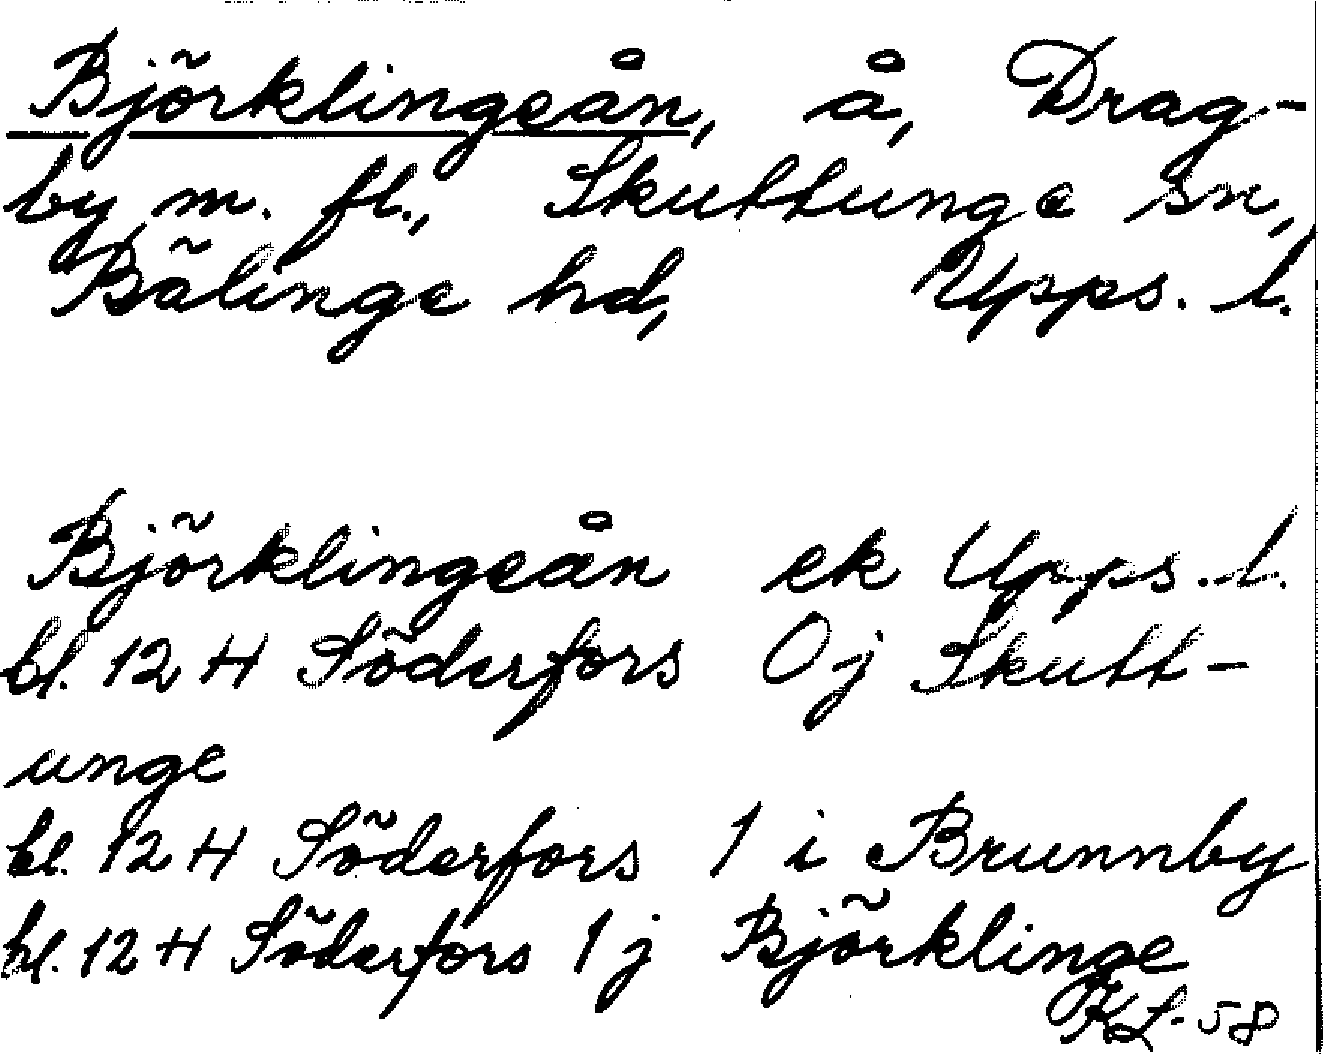 Björklingeån, å, Drag-
by m. fl., Skuttunge sn,
Bälinge hd, Upps. l.
Björklingeån ek Upps. l.
bl. 12 H Söderfors 0j Skutt-
unge
bl. 12 H Söderfors 1 i Brunnby
bl. 12 H Söderfors 1 j Björklinge
KL-58